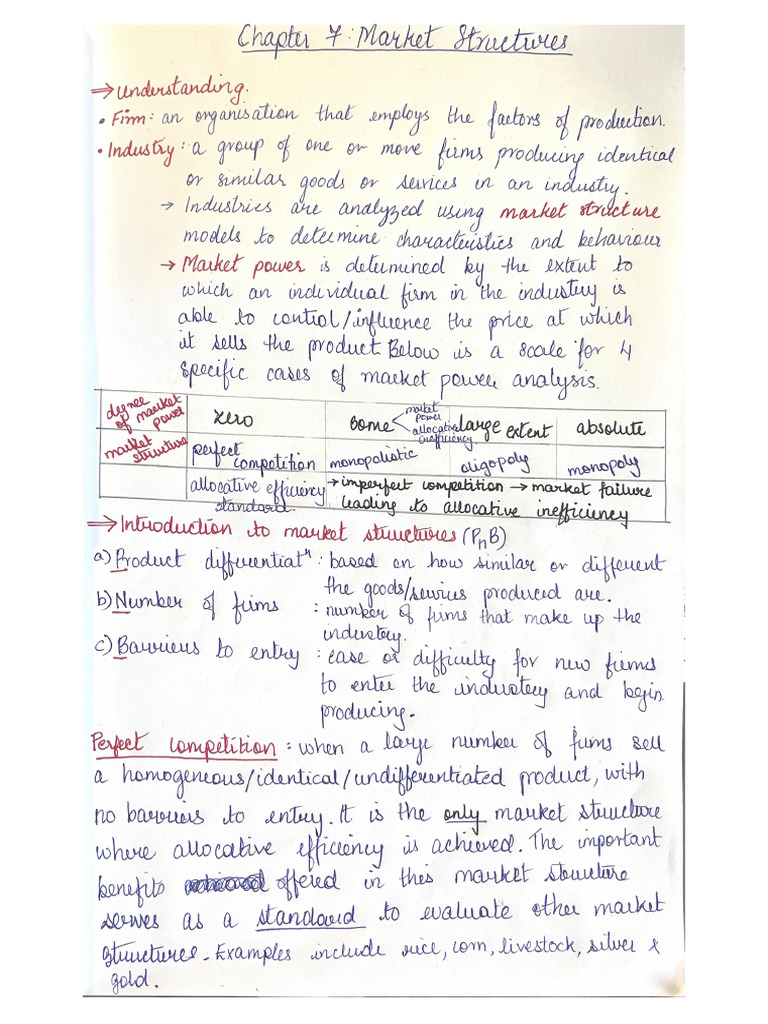 Chapter 7: Market Structures
⇒ Understanding.
• Firm: an organisation that employs the factors of production.
• Industry: a group of one or more firms producing identical
or similar goods or services in an industry.
→ Industries are analyzed using market structure
models to determine characteristics and behaviour
→ Market power is determined by the extent to
which an individual firm in the industry is
able to control/influence the price at which
it sells the product. Below is a scale for 4
specific cases of market power analysis.
degree of market power | zero | some < market power allocative inefficiency | large extent | absolute
market structure | perfect competition | monopolistic | oligopoly | monopoly
allocative efficiency standard. | → imperfect competition → market failure
leading to allocative inefficiency
⇒ Introduction to market structures (PnB)
a) Product differentiatⁿ : based on how similar or different
the goods/services produced are.
b) Number of firms : number of firms that make up the
industory.
c) Barriers to entry : ease or difficulty for new firms
to enter the industory and begin
producing.
Perfect competition : when a large number of firms sell
a homogeneous/identical/undifferentiated product, with
no barriers to entry. It is the only market structure
where allocative efficiency is achieved. The important
benefits offered in this market structure
serves as a standard to evaluate other market
structures. Examples include rice, corn, livestock, silver &
gold.